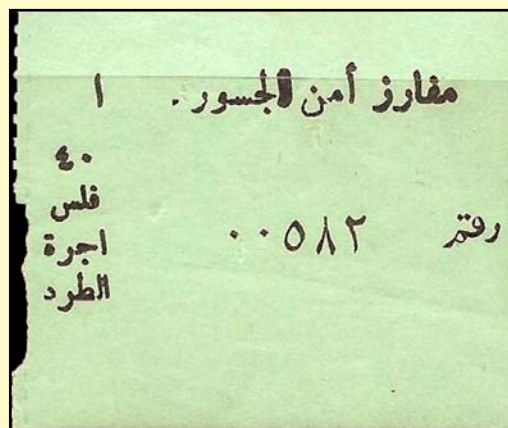 مفارز أمن الجسور . ١
٤٠
فلس
اجرة
الطرد
رقم ٠٠٥٨٢